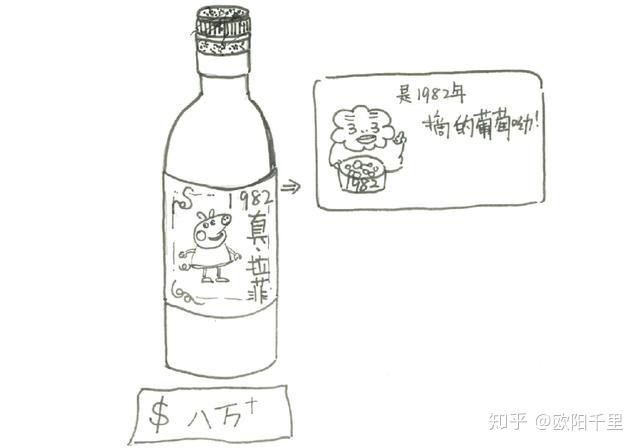 是1982年
摘的葡萄呦!
1982
1982
真·拉菲
$ 八万+
知乎 @欧阳千里